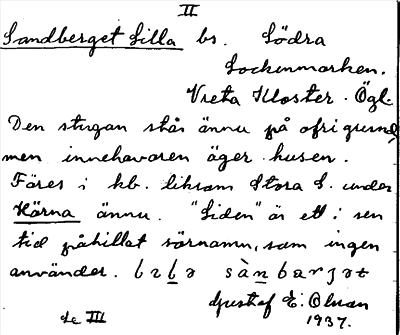 II
Sandberget Lilla bs. Södra
Sockenmarken.
Vreta Kloster. Ögl.
Den stugan står ännu på ofri grund,
men innehavaren äger husen.
Föres i kb. liksom Stora S. under
Kärna ännu. "Liden" är ett i sen
tid påhittat särnamn, som ingen
använder.
Se III Gustaf E. Olsson
1937.